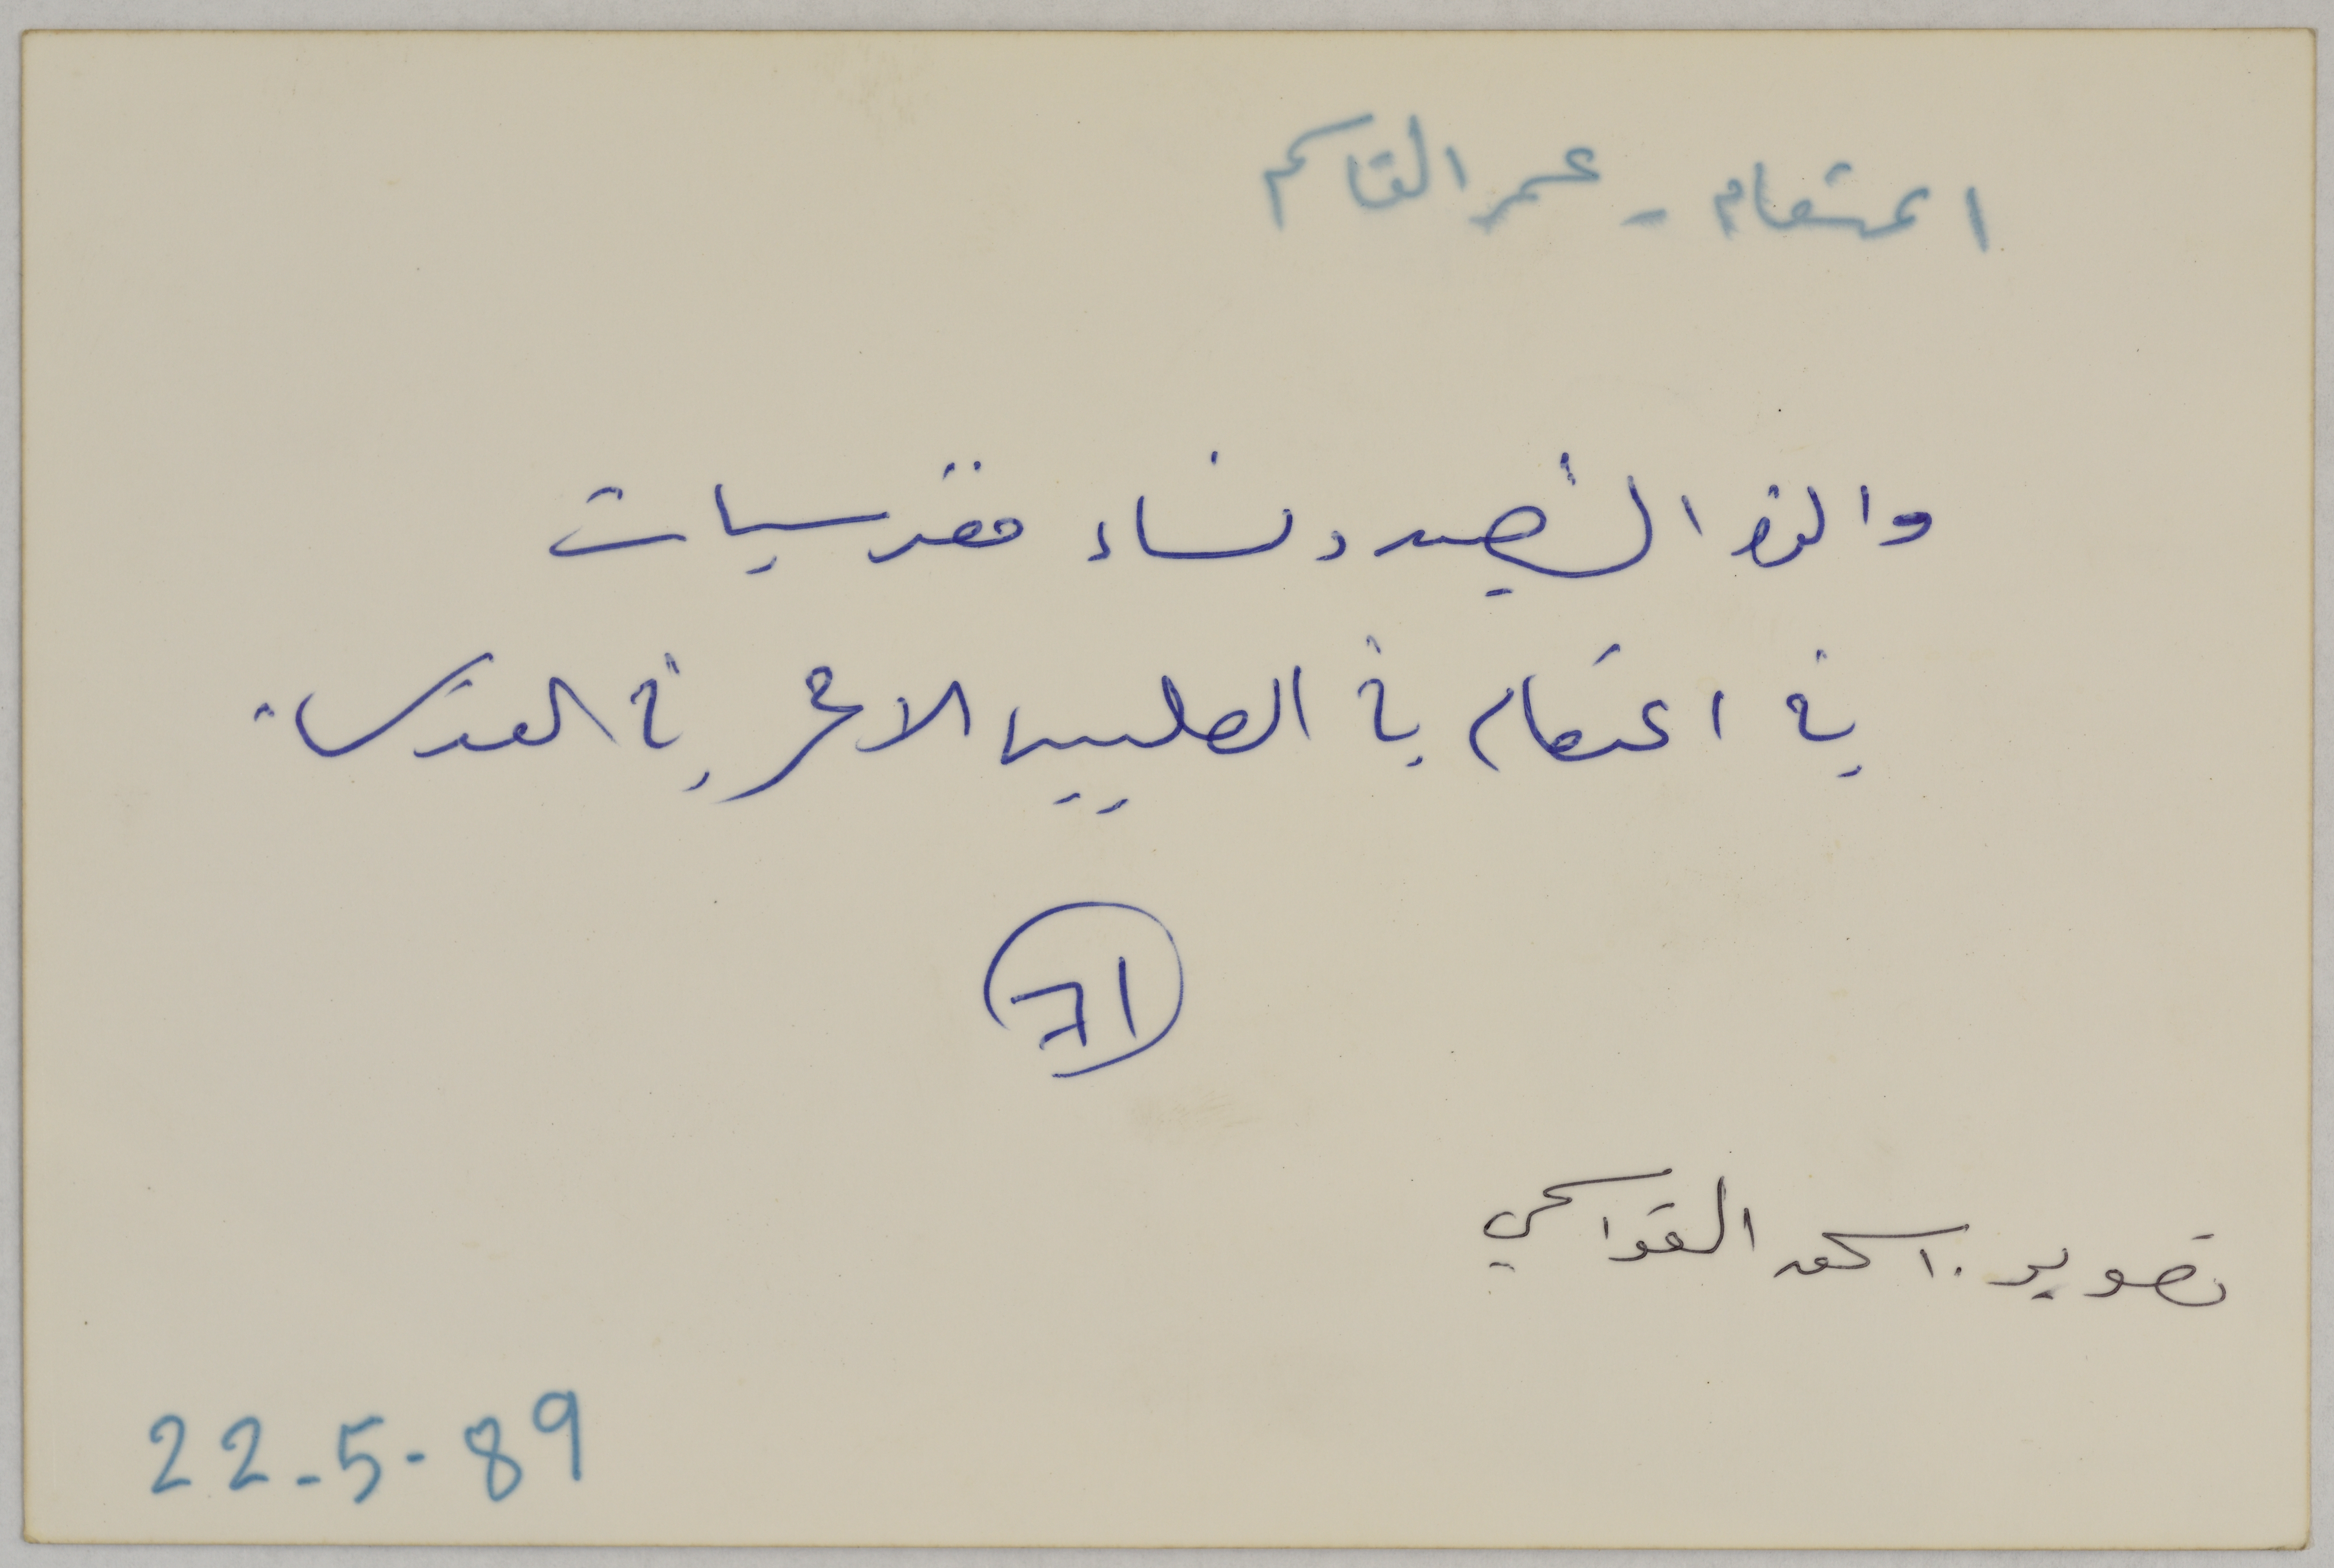 اعتصام - عمر القاسم
والدة الشهيد ونساء مقدسيات
في اعتصام في الصليب الاحمر في القدس.
71
تصوير . اسحق القواسمي
22-5-89